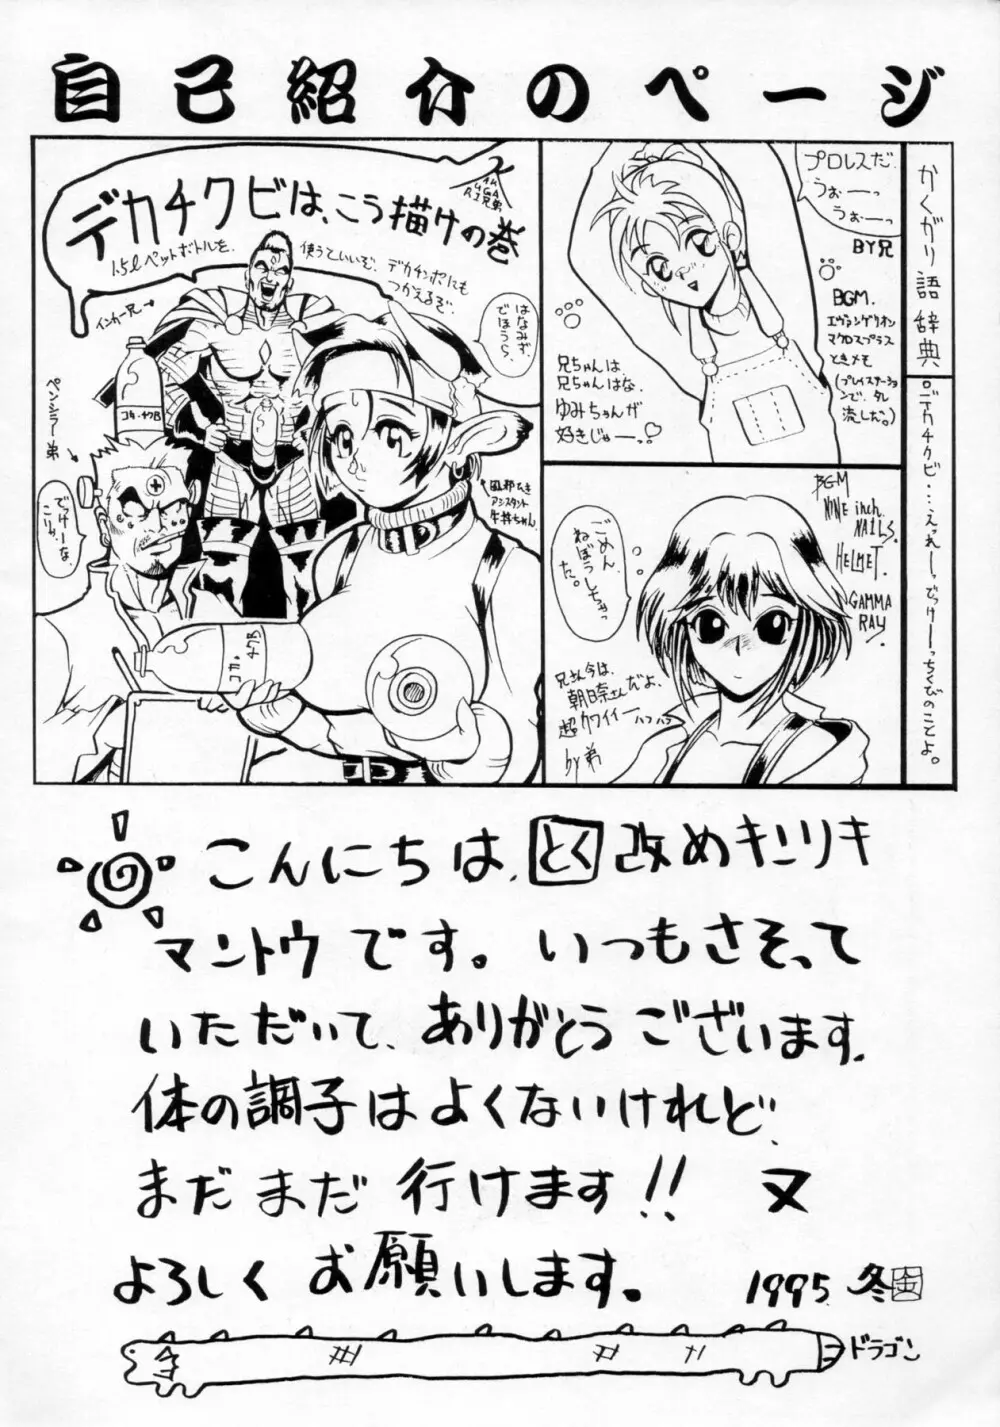 自己紹介のページ
デカチクビは、こう描けの巻
兄弟
1.5ℓペットボトルを、
使うといいぞ、デカチンポにも
つかえるぞ。
インカー兄→
ペンシラー弟
コカ・チクB
はなみず
でほうら、
でっけーな、
こりゃ。
風邪ひき
アシスタント
牛丼ちゃん
コカ・チクB
プロレスだ
うぉーーっ
うぉーーっ
BY兄
BGM.
エヴァンゲリオン
マクロスプラス
ときメモ
(プレイステーショ
ンで、タレ
流した。)
兄ちゃんは、
兄ちゃんはな、
ゆみちゃんが
好きじゃーっ♡
BGM
NINE inch
NAILS.
HELMET.
GAMMA
RAY.
ごめん、
ねぼうしちゃっ
た。
兄さん今は、
朝日奈さんだよ、
超カワイイーハァハァ
by弟
かくがり語辞典
◦デカチクビ…えっれーーっでっけーーっちくびのことよ。
こんにちは、とく改めキンリキ
マントウです。いつもさそって
いただいて、ありがとうございます。
体の調子はよくないけれど、
まだまだ行けます!!又
よろしくお願いします。
1995.冬
ドラゴン